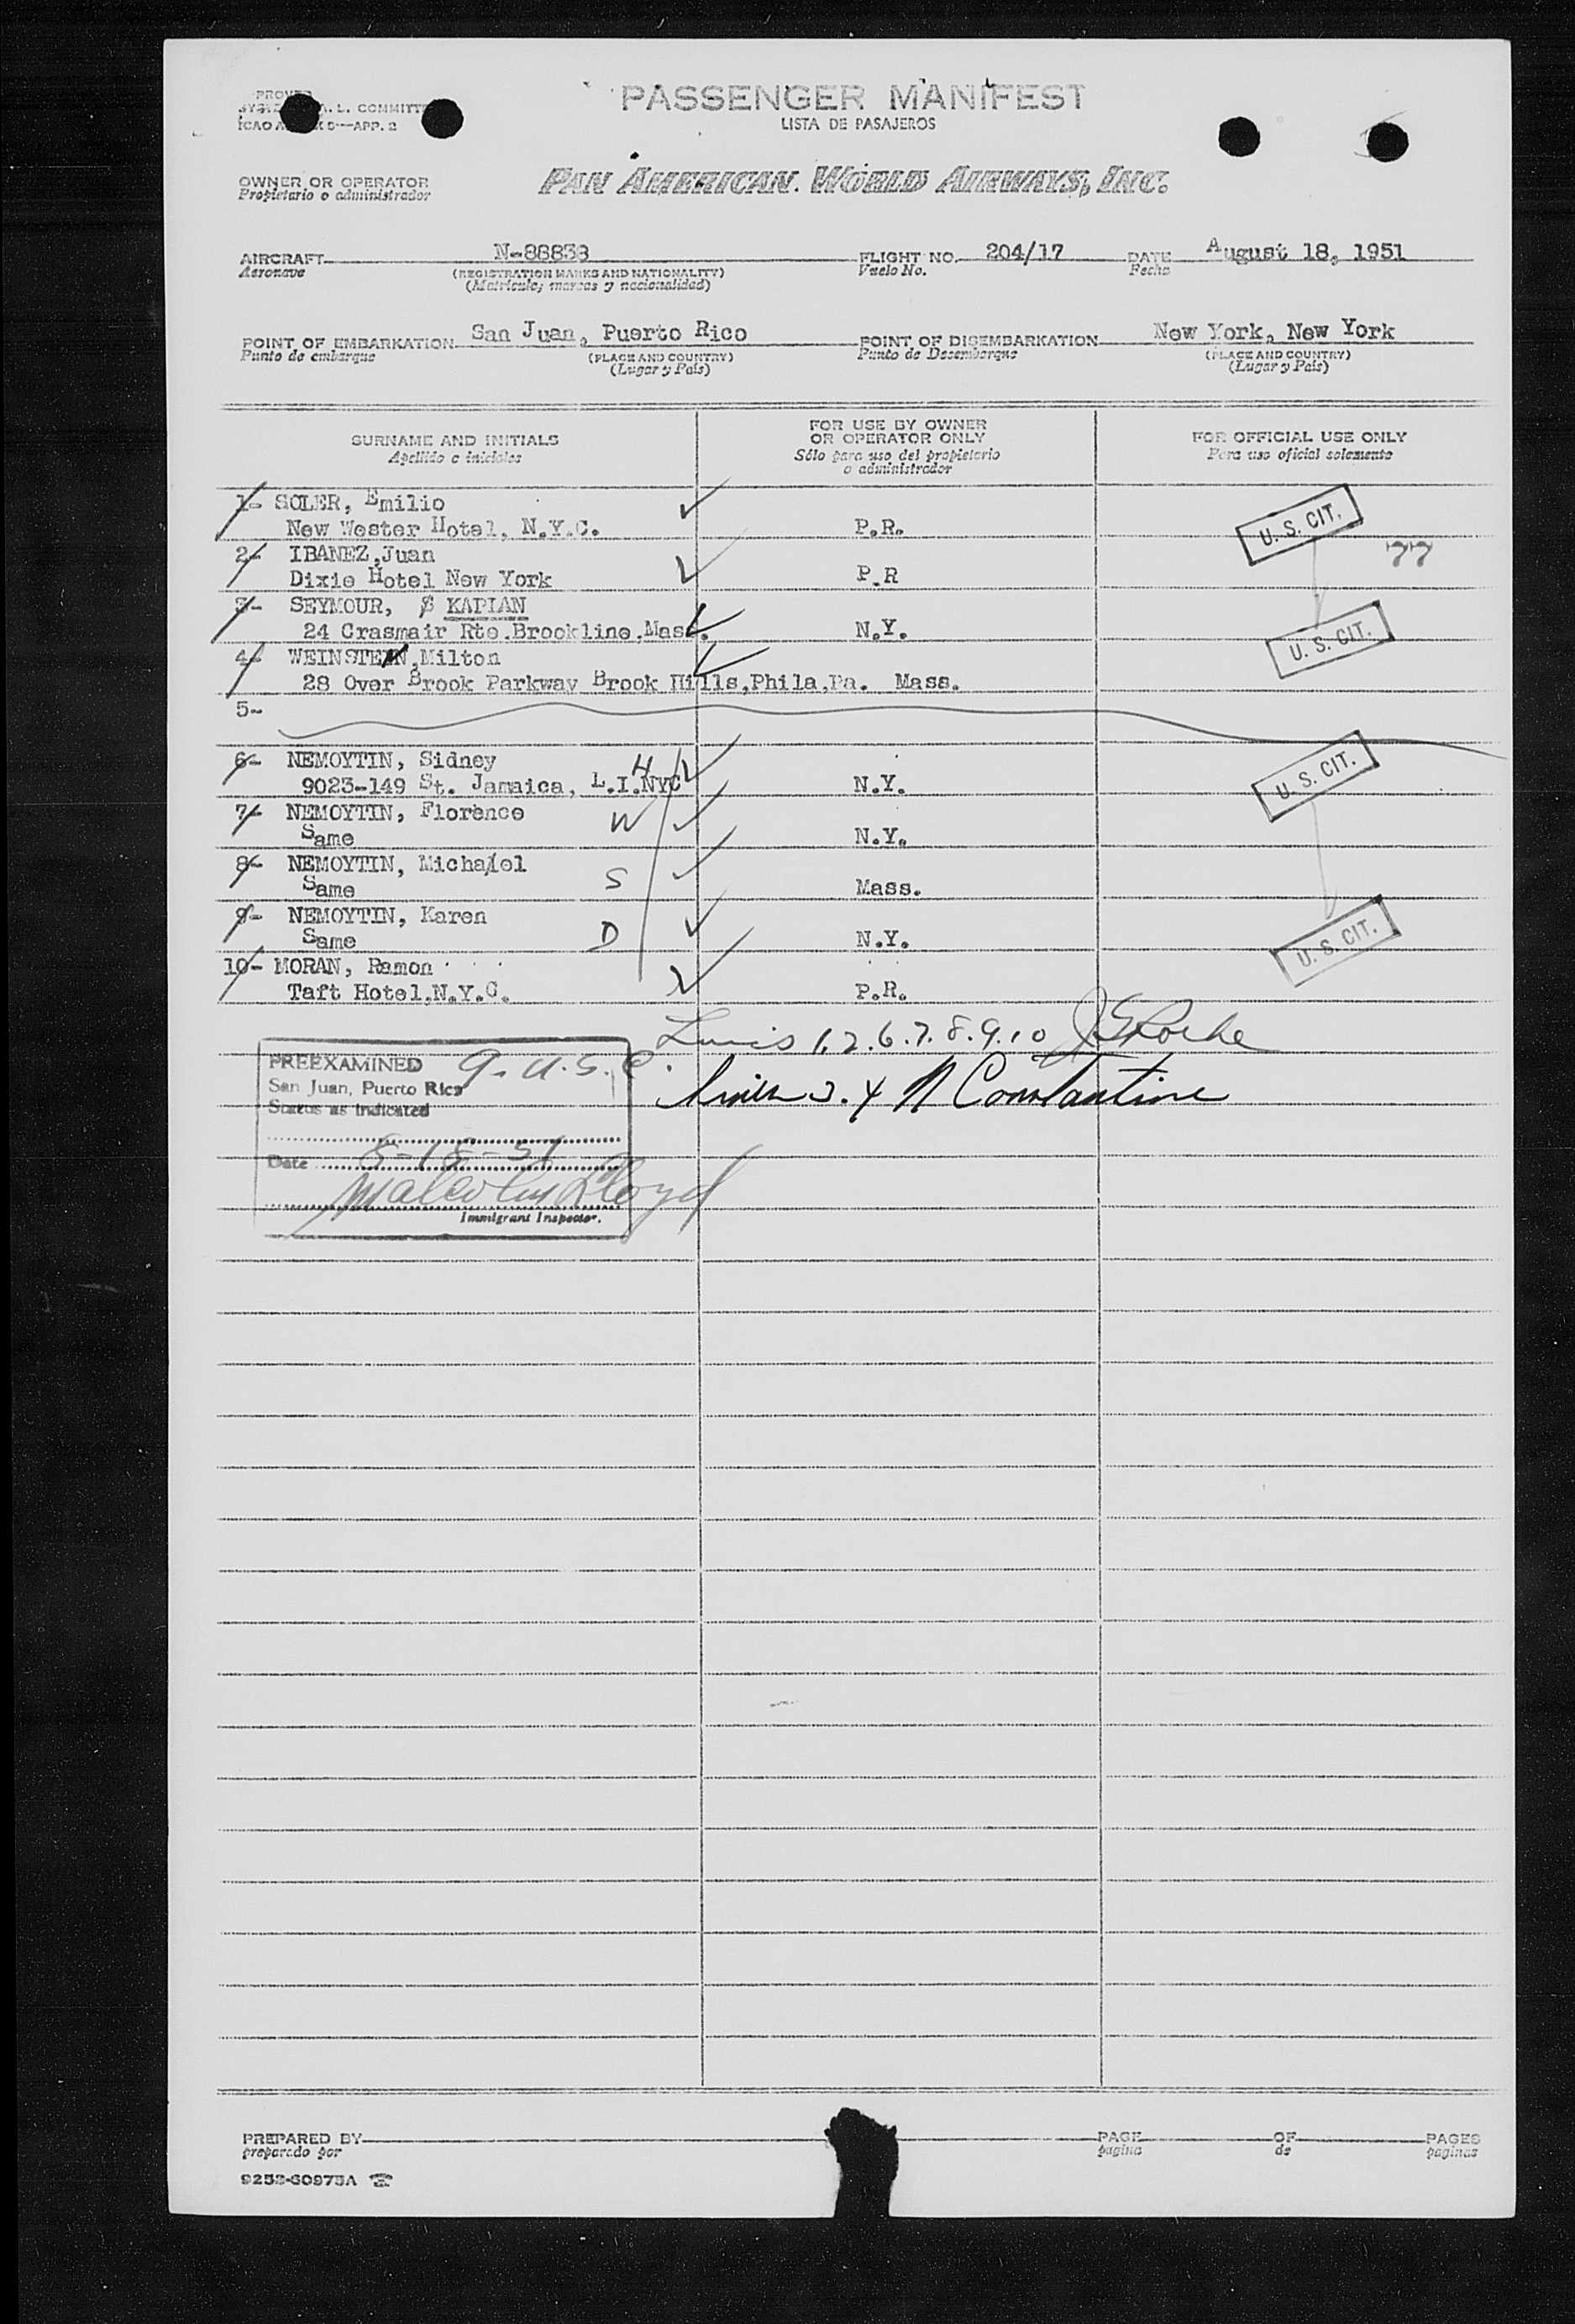 PASSENGER MANIFEST
LISTA DE PASAJEROS
A. L. COMMITT
ICAO A 5—APP. 2
OWNER OR OPERATOR
Propietario o administrador
PAN AMERICAN WORLD AIRWAYS, INC.
AIRCRAFT N-88838 FLIGHT NO. 204/17 DATE August 18, 1951
Aeronave (REGISTRATION MARKS AND NATIONALITY) Vuelo No. Fecha
(Matrícula, marcas y nacionalidad)
POINT OF EMBARKATION San Juan, Puerto Rico POINT OF DISEMBARKATION New York, New York
Punto de embarque (PLACE AND COUNTRY) Punto de Desembarque (PLACE AND COUNTRY)
(Lugar y País) (Lugar y País)
SURNAME AND INITIALS
Apellido e iniciales
FOR USE BY OWNER
OR OPERATOR ONLY
Sólo para uso del propietario
o administrador
FOR OFFICIAL USE ONLY
Para uso oficial solamente
1- SOLER, Emilio
New Wester Hotel, N.Y.C. P.R. U. S. CIT.
2- IBANEZ,Juan 77
Dixie Hotel New York P.R
3- SEYMOUR, S KAPLAN
24 Crasmair Rte.Brookline.Mass. N.Y. U. S. CIT.
4- WEINSTEIN,Milton
28 Over Brook Parkway Brook Hills,Phila,Pa. Mass.
5-
6- NEMOYTIN, Sidney H
9023-149 St. Jamaica, L.I.NYC N.Y. U. S. CIT.
7- NEMOYTIN, Florence W
Same N.Y.
8- NEMOYTIN, Michael S
Same Mass.
9- NEMOYTIN, Karen D
Same N.Y. U. S. CIT.
10- MORAN, Ramon
Taft Hotel,N.Y.C. P.R.
1.2.6.7.8.9.10
3. 4 N Constantine
PREEXAMINED 9. U.S.C.
San Juan, Puerto Rico
Status as indicated
Date 8-18-51
Malcolm Lloyd
Immigrant Inspector.
PREPARED BY PAGE OF PAGES
preparado por página de páginas
9253-60975A